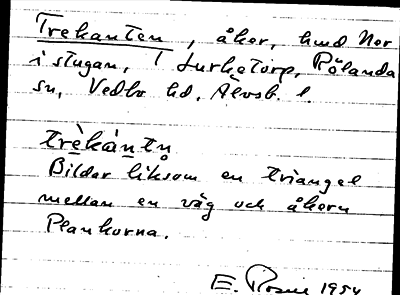 Trekanten, åker, hmd Nor
i stugan, T Lurketorp, Rölanda
sn, Vedbo hd, Älvsb. l.
trèkàntn
Bildar liksom en triangel
mellan en väg och åkern
Plankorna.
E. Rosin 1954